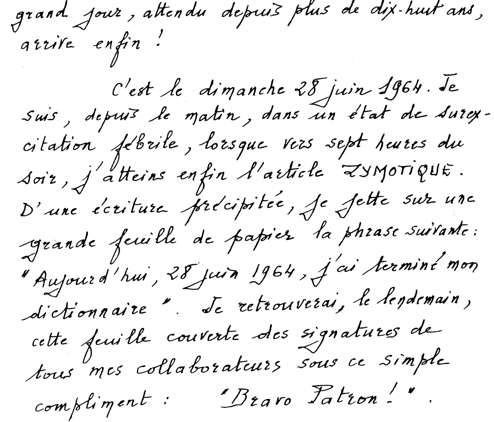 grand jour, attendu depuis plus de dix-huit ans,
arrive enfin !
C'est le dimanche 28 juin 1964. Je
suis, depuis le matin, dans un état de surex-
citation fébrile, lorsque vers sept heures du
soir, j'atteins enfin l'article ZYMOTIQUE.
D'une écriture précipitée, je jette sur une
grande feuille de papier la phrase suivante :
"Aujourd'hui, 28 juin 1964, j'ai terminé mon
dictionnaire". Je retrouverai, le lendemain,
cette feuille couverte des signatures de
tous mes collaborateurs sous ce simple
compliment : "Bravo Patron !".